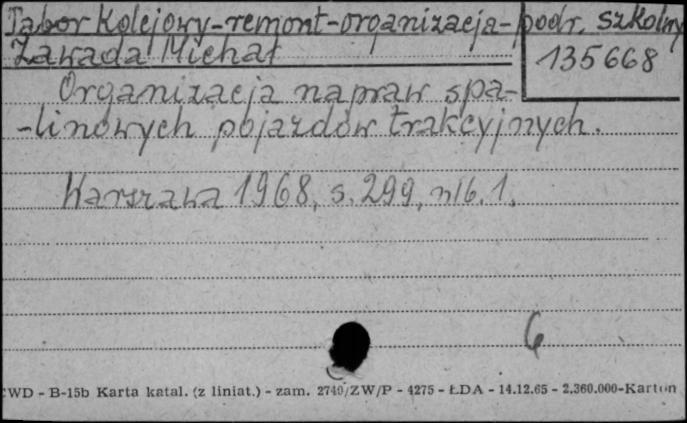 Tabor kolejowy-remont-organizacja-podr. szkolny
Zawada Michał
135668
Organizacja napraw spa-
-linowych pojazdów trakcyjnych.
Warszawa 1968, s. 299, nlb. 1.
6
WD - B-15b Karta katal. (z liniat.) - zam. 2749/ZW/P - 4275 - ŁDA - 14.12.65 - 2.360.000-Karton